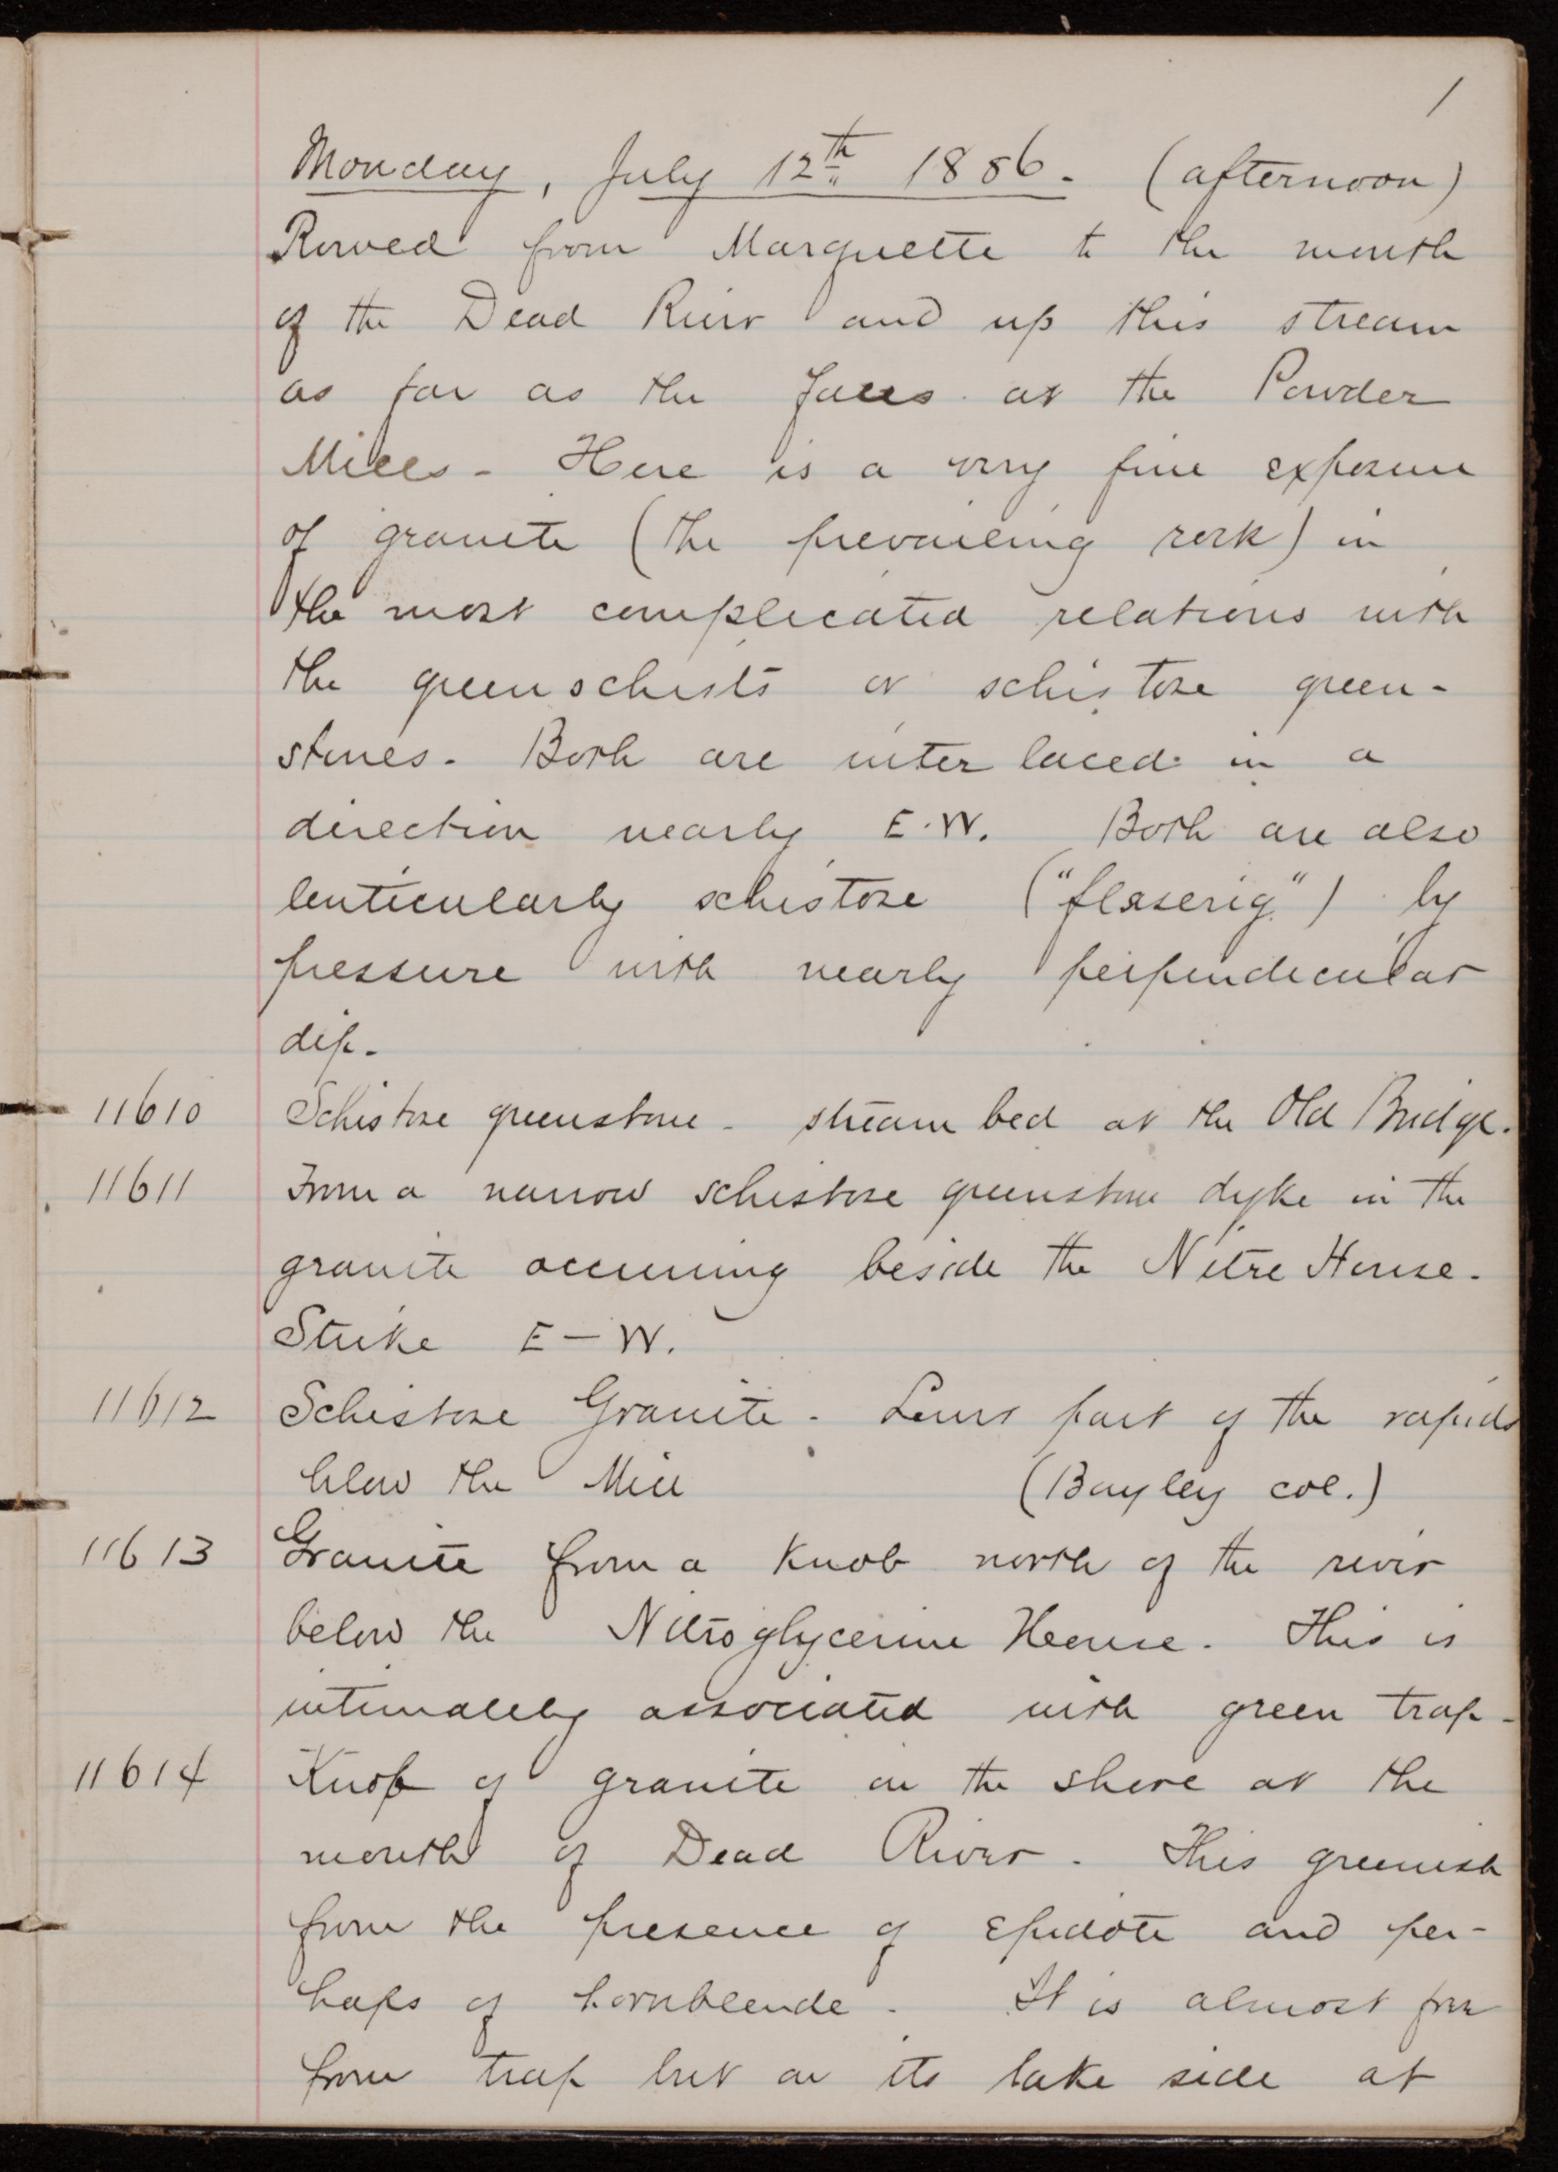 1
Monday, July 12th 1886. (afternoon)
Rowed from Marquette to the mouth
of the Dead River and up this stream
as far as the falls at the Powder
Mills. Here is a very fine exposure
of granite (the prevailing rock) in
the most complicated relations with
the greenschists or schistose green-
stones. Both are interlaced in a
direction nearly E.W. Both are also
lenticularly schistose ("flaserig") by
pressure with nearly perpendicular
dip.
11610 Schistose greenstone - stream bed at the Old Bridge.
11611 From a narrow schistose greenstone dyke in the
granite occurring beside the Nitre House.
Strike E-W.
11612 Schistose Granite. Lower part of the rapids
below the Mill (Bayley col.)
11613 Granite from a knob north of the river
below the Nitroglycerine House. This is
intimately associated with green trap.
11614 Knob of granite on the shore at the
mouth of Dead River. This greenish
from the presence of Epidote and per-
haps of hornblende. It is almost free
from trap but on its lake side at